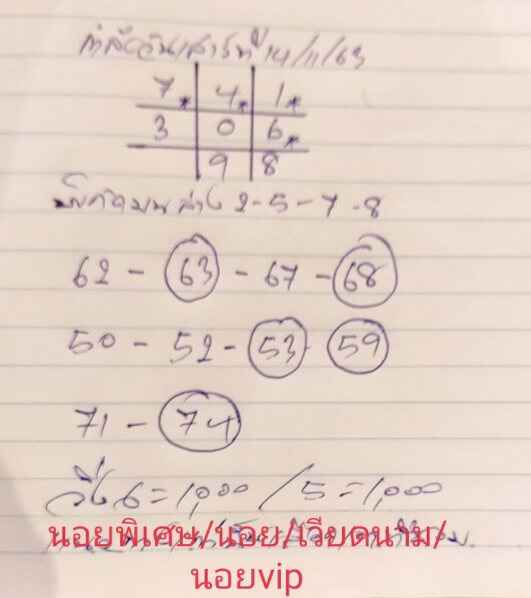 วันเสาร์ที่ 14/11/63
7* 4* 1*
3 0 6*
9 8
บน ล่าง 2-5-7-8
62 - 63 - 67 - 68
50 - 52 - 53 - 59
71 - 74
วิ่ง 6=1,000 / 5=1,000
นอยพิเศษ/นอย/เวียดนาม/
นอยvip